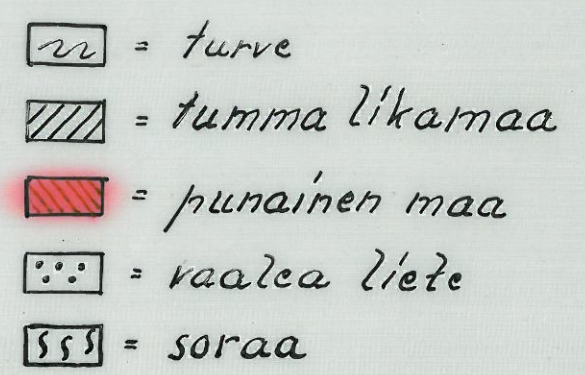 = turve
= tumma likamaa
= punainen maa
= vaalea liete
= soraa